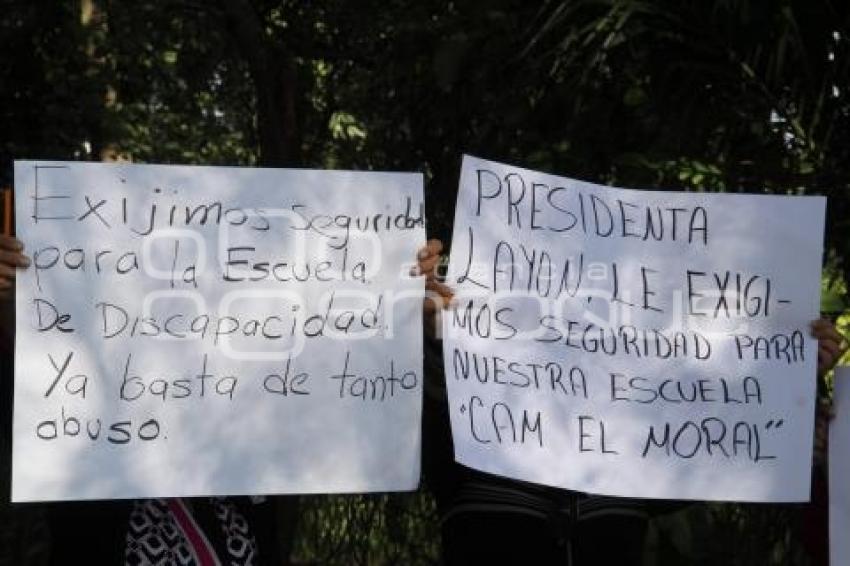 Exijimos seguridad
para la Escuela
De Discapacidad.
Ya basta de tanto
abuso.
PRESIDENTA
LAYON. LE EXIGI-
MOS SEGURIDAD PARA
NUESTRA ESCUELA
"CAM EL MORAL"
agencia
enfoque